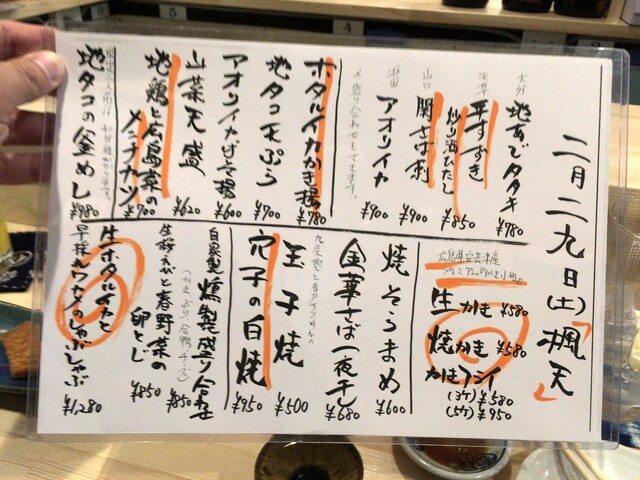 二月二九日(土)
楓天
大分 地あじタタキ ¥980
天草 平すずき
炒り酒びたし ¥850
山口 関さば刺 ¥900
アオリイカ ¥900
〆盛り合わせもできます。
ホタルイカかき揚 ¥780
地タコ天ぷら ¥700
アオリイカげそ揚 ¥600
山菜天盛 ¥620
地鶏と広島菜の
メンチカツ ¥700
地タコの釜めし ¥980
生かき ¥580
焼かき ¥580
かきフライ
(3ケ) ¥580
(5ケ) ¥950
焼そらまめ ¥600
金華さば一夜干し ¥680
玉子焼 ¥500
穴子の白焼 ¥950
自家製燻製盛り合わせ ¥850
(かき、ぶり、合鴨、チーズ)
生桜えびと春野菜の
卵とじ ¥850
生ホタルイカと
早採れワカメのしゃぶしゃぶ ¥1,280